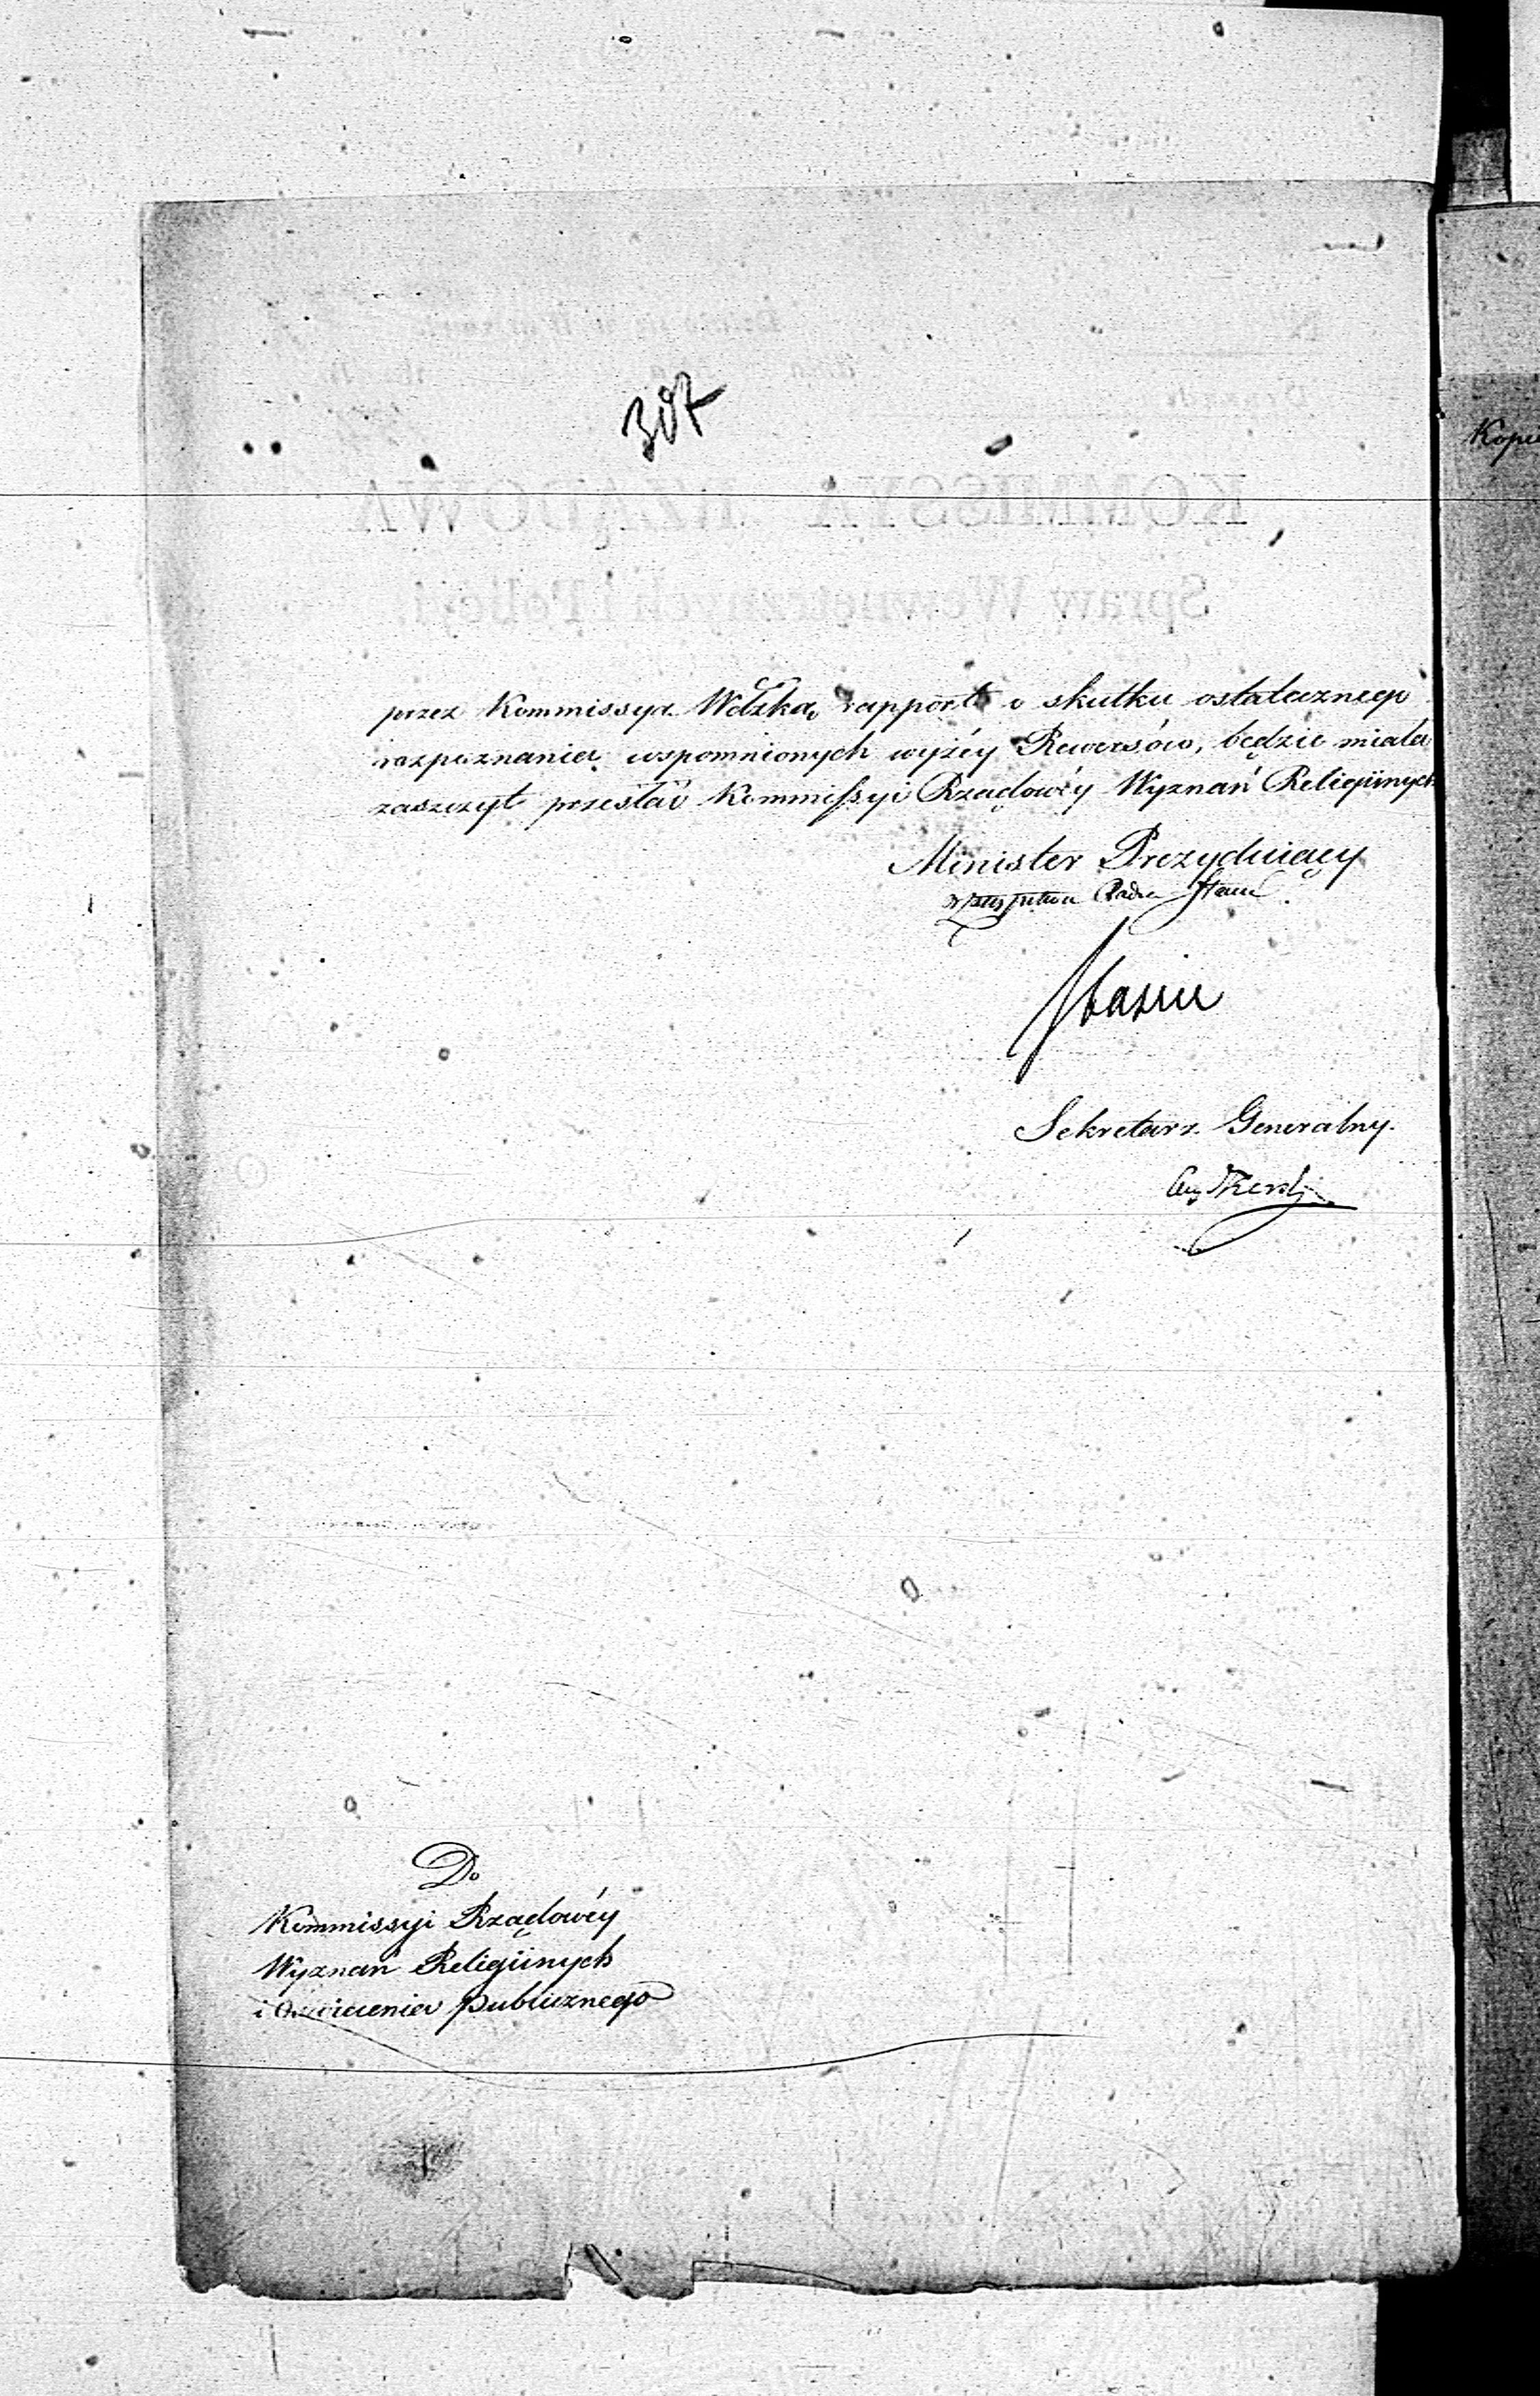 307
przez Kommissyą Wdzką, rapport o skutku ostatecznego
rozpoznania wspomnionych wyżéy Rewersów, będzie miała
zaszczyt przesłać Kommissyi Rządowéy Wyznań Religiinych
Minister Prezyduiący
w zastępstwie Radca Stanu
Staszic
Sekretarz Generalny.
Do
Kommissyi Rządowéy
Wyznań Religiinych
i Oświecenia publicznego